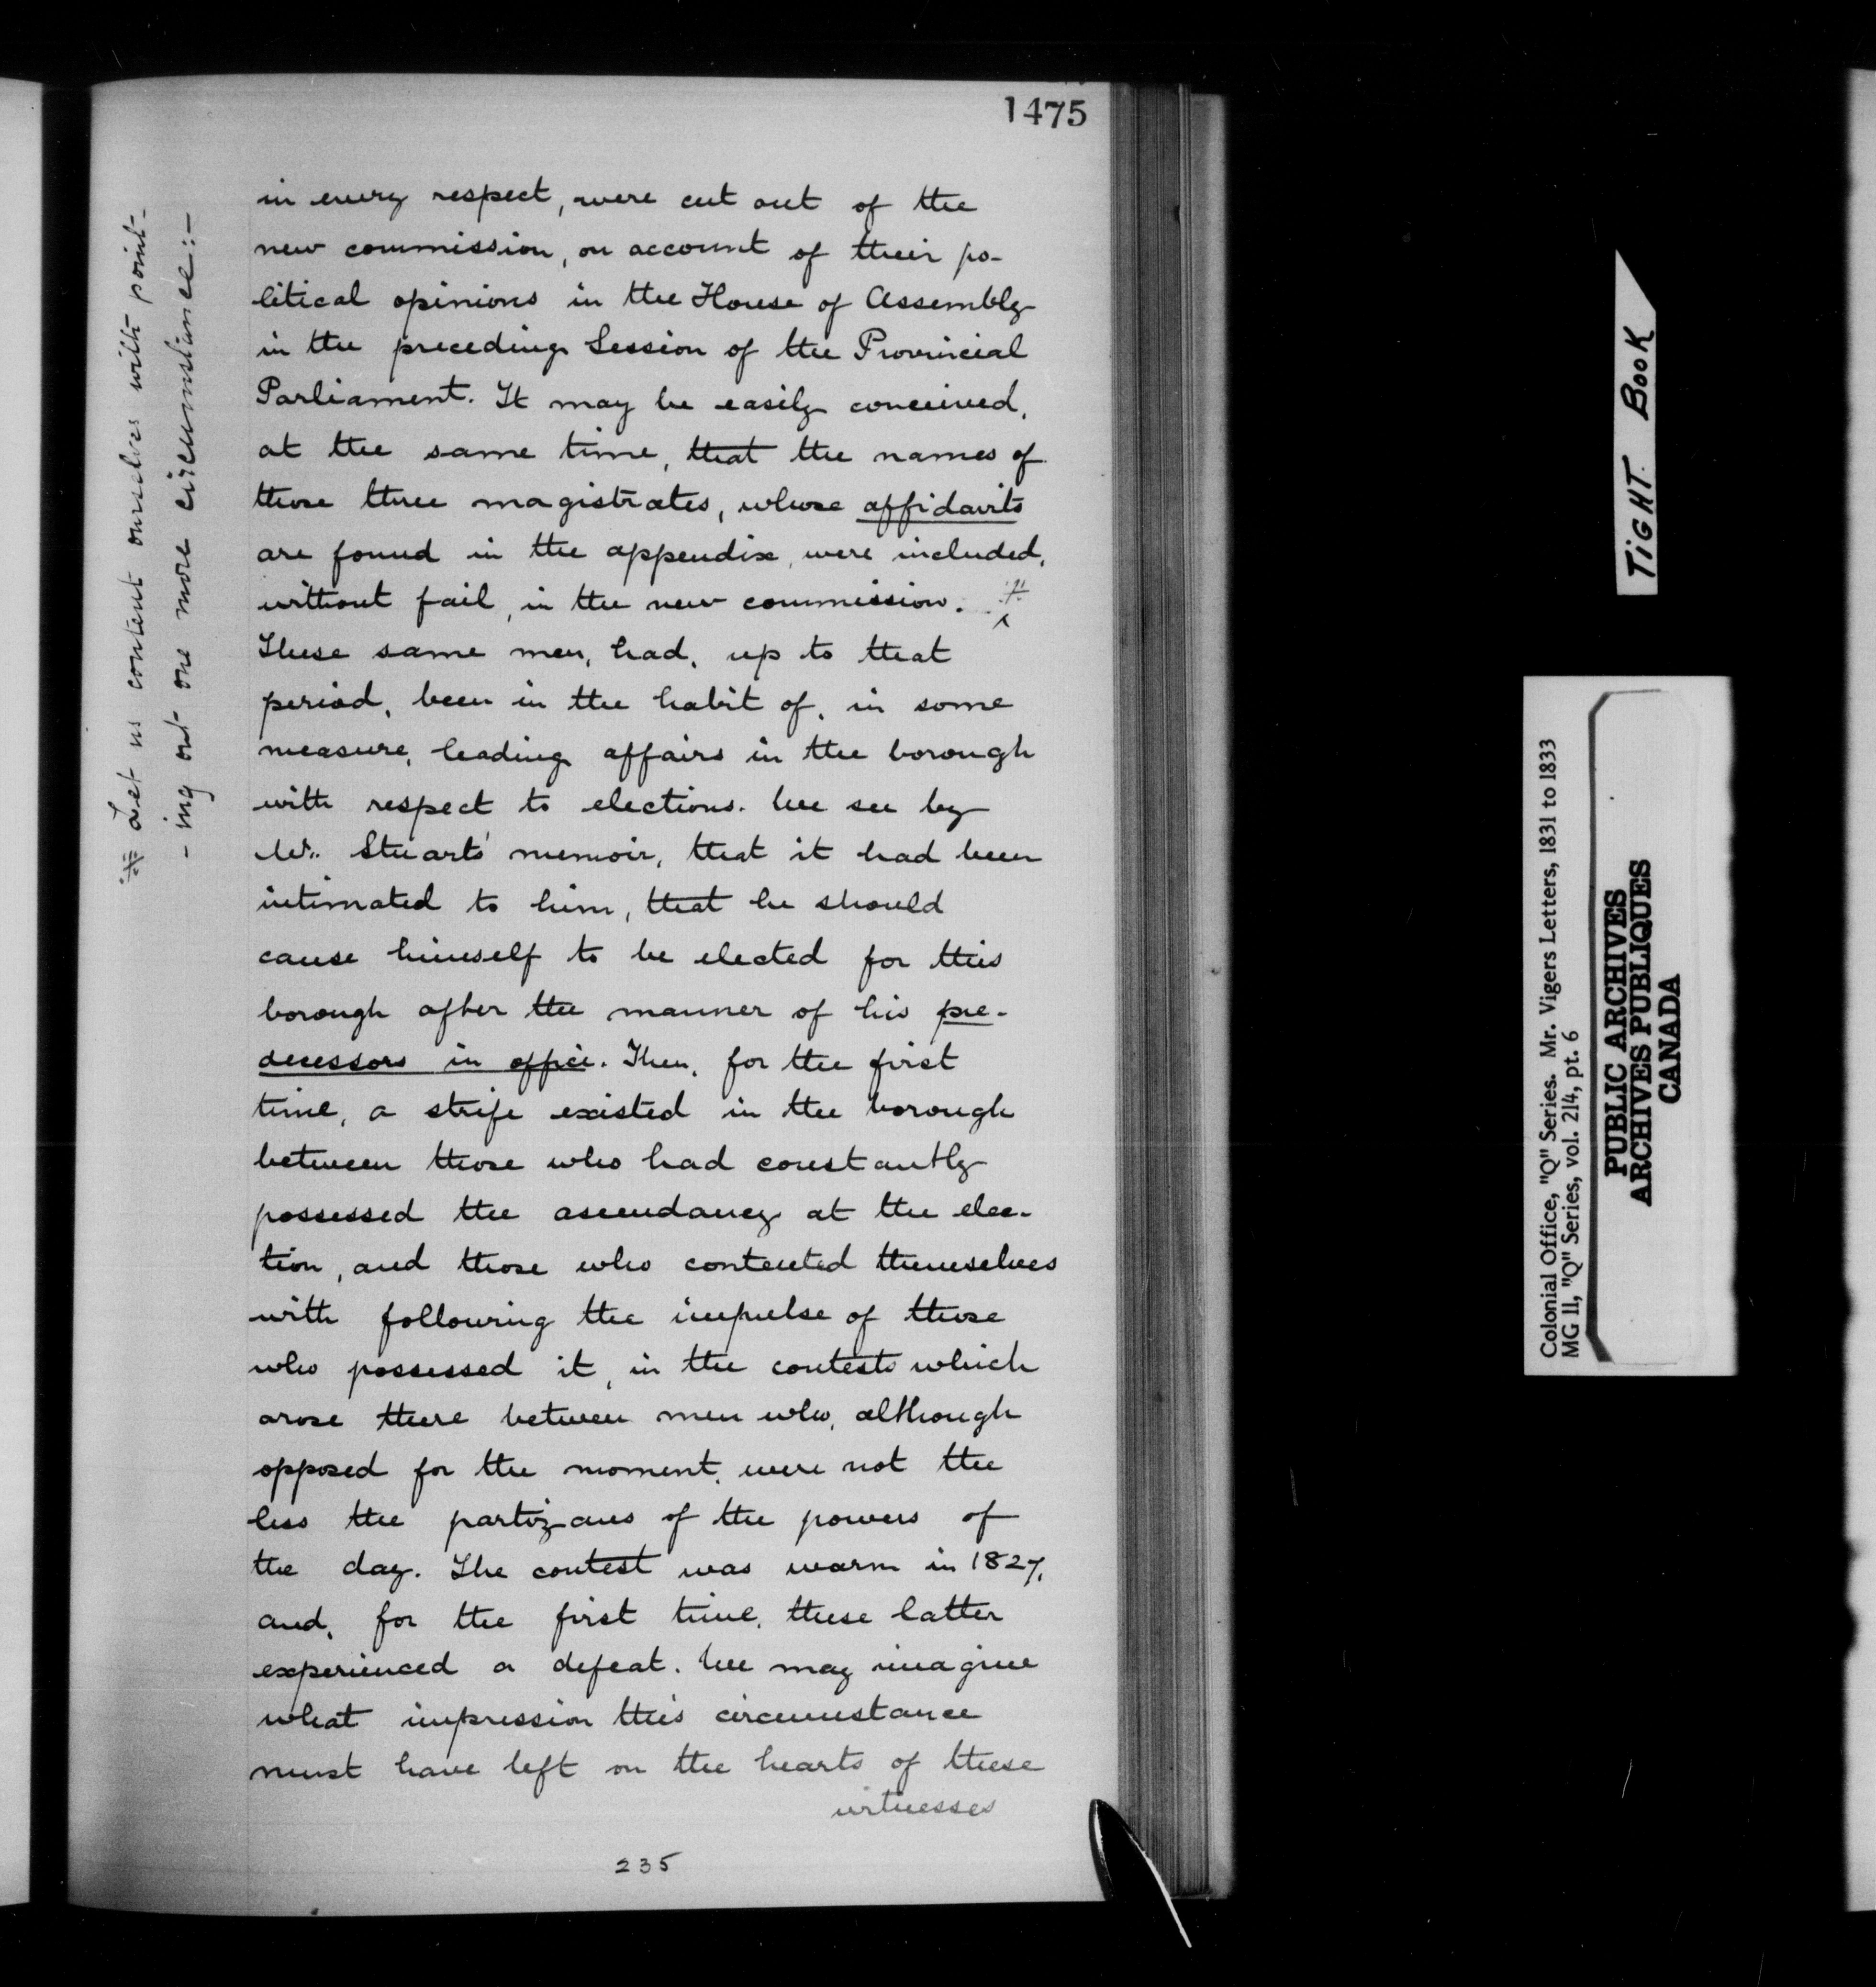 1475
in every respect, were cut out of the
new commission, on account of their po-
litical opinions in the House of Assembly
in the preceding Session of the Provincial
Parliament. It may be easily conceived,
at the same time, that the names of
those three magistrates, whose affidavits
are found in the appendix, were included,
without fail, in the new commission. #
These same men, had, up to that
period, been in the habit of, in some
measure, leading affairs in the borough
with respect to elections. We see by
Mr. Stuart's memoir, that it had been
intimated to him, that he should
cause himself to be elected for this
borough after the manner of his pre-
decessors in office. Then, for the first
time, a strife existed in the borough
between those who had constantly
possessed the ascendancy at the elec-
tion, and those who contented themselves
with following the impulse of those
who possessed it, in the contests which
arose there between men who, although
opposed for the moment, were not the
less the partizans of the powers of
the day. The contest was warm in 1827,
and, for the first time, these latter
experienced a defeat. We may imagine
what impression this circumstance
must have left on the hearts of these
witnesses
235
# Let us content ourselves with point-
-ing out one more circumstance:-
TIGHT BOOK
Colonial Office, "Q" Series. Mr. Vigers Letters, 1831 to 1833
MG 11, "Q" Series, vol. 214, pt. 6
PUBLIC ARCHIVES
ARCHIVES PUBLIQUES
CANADA